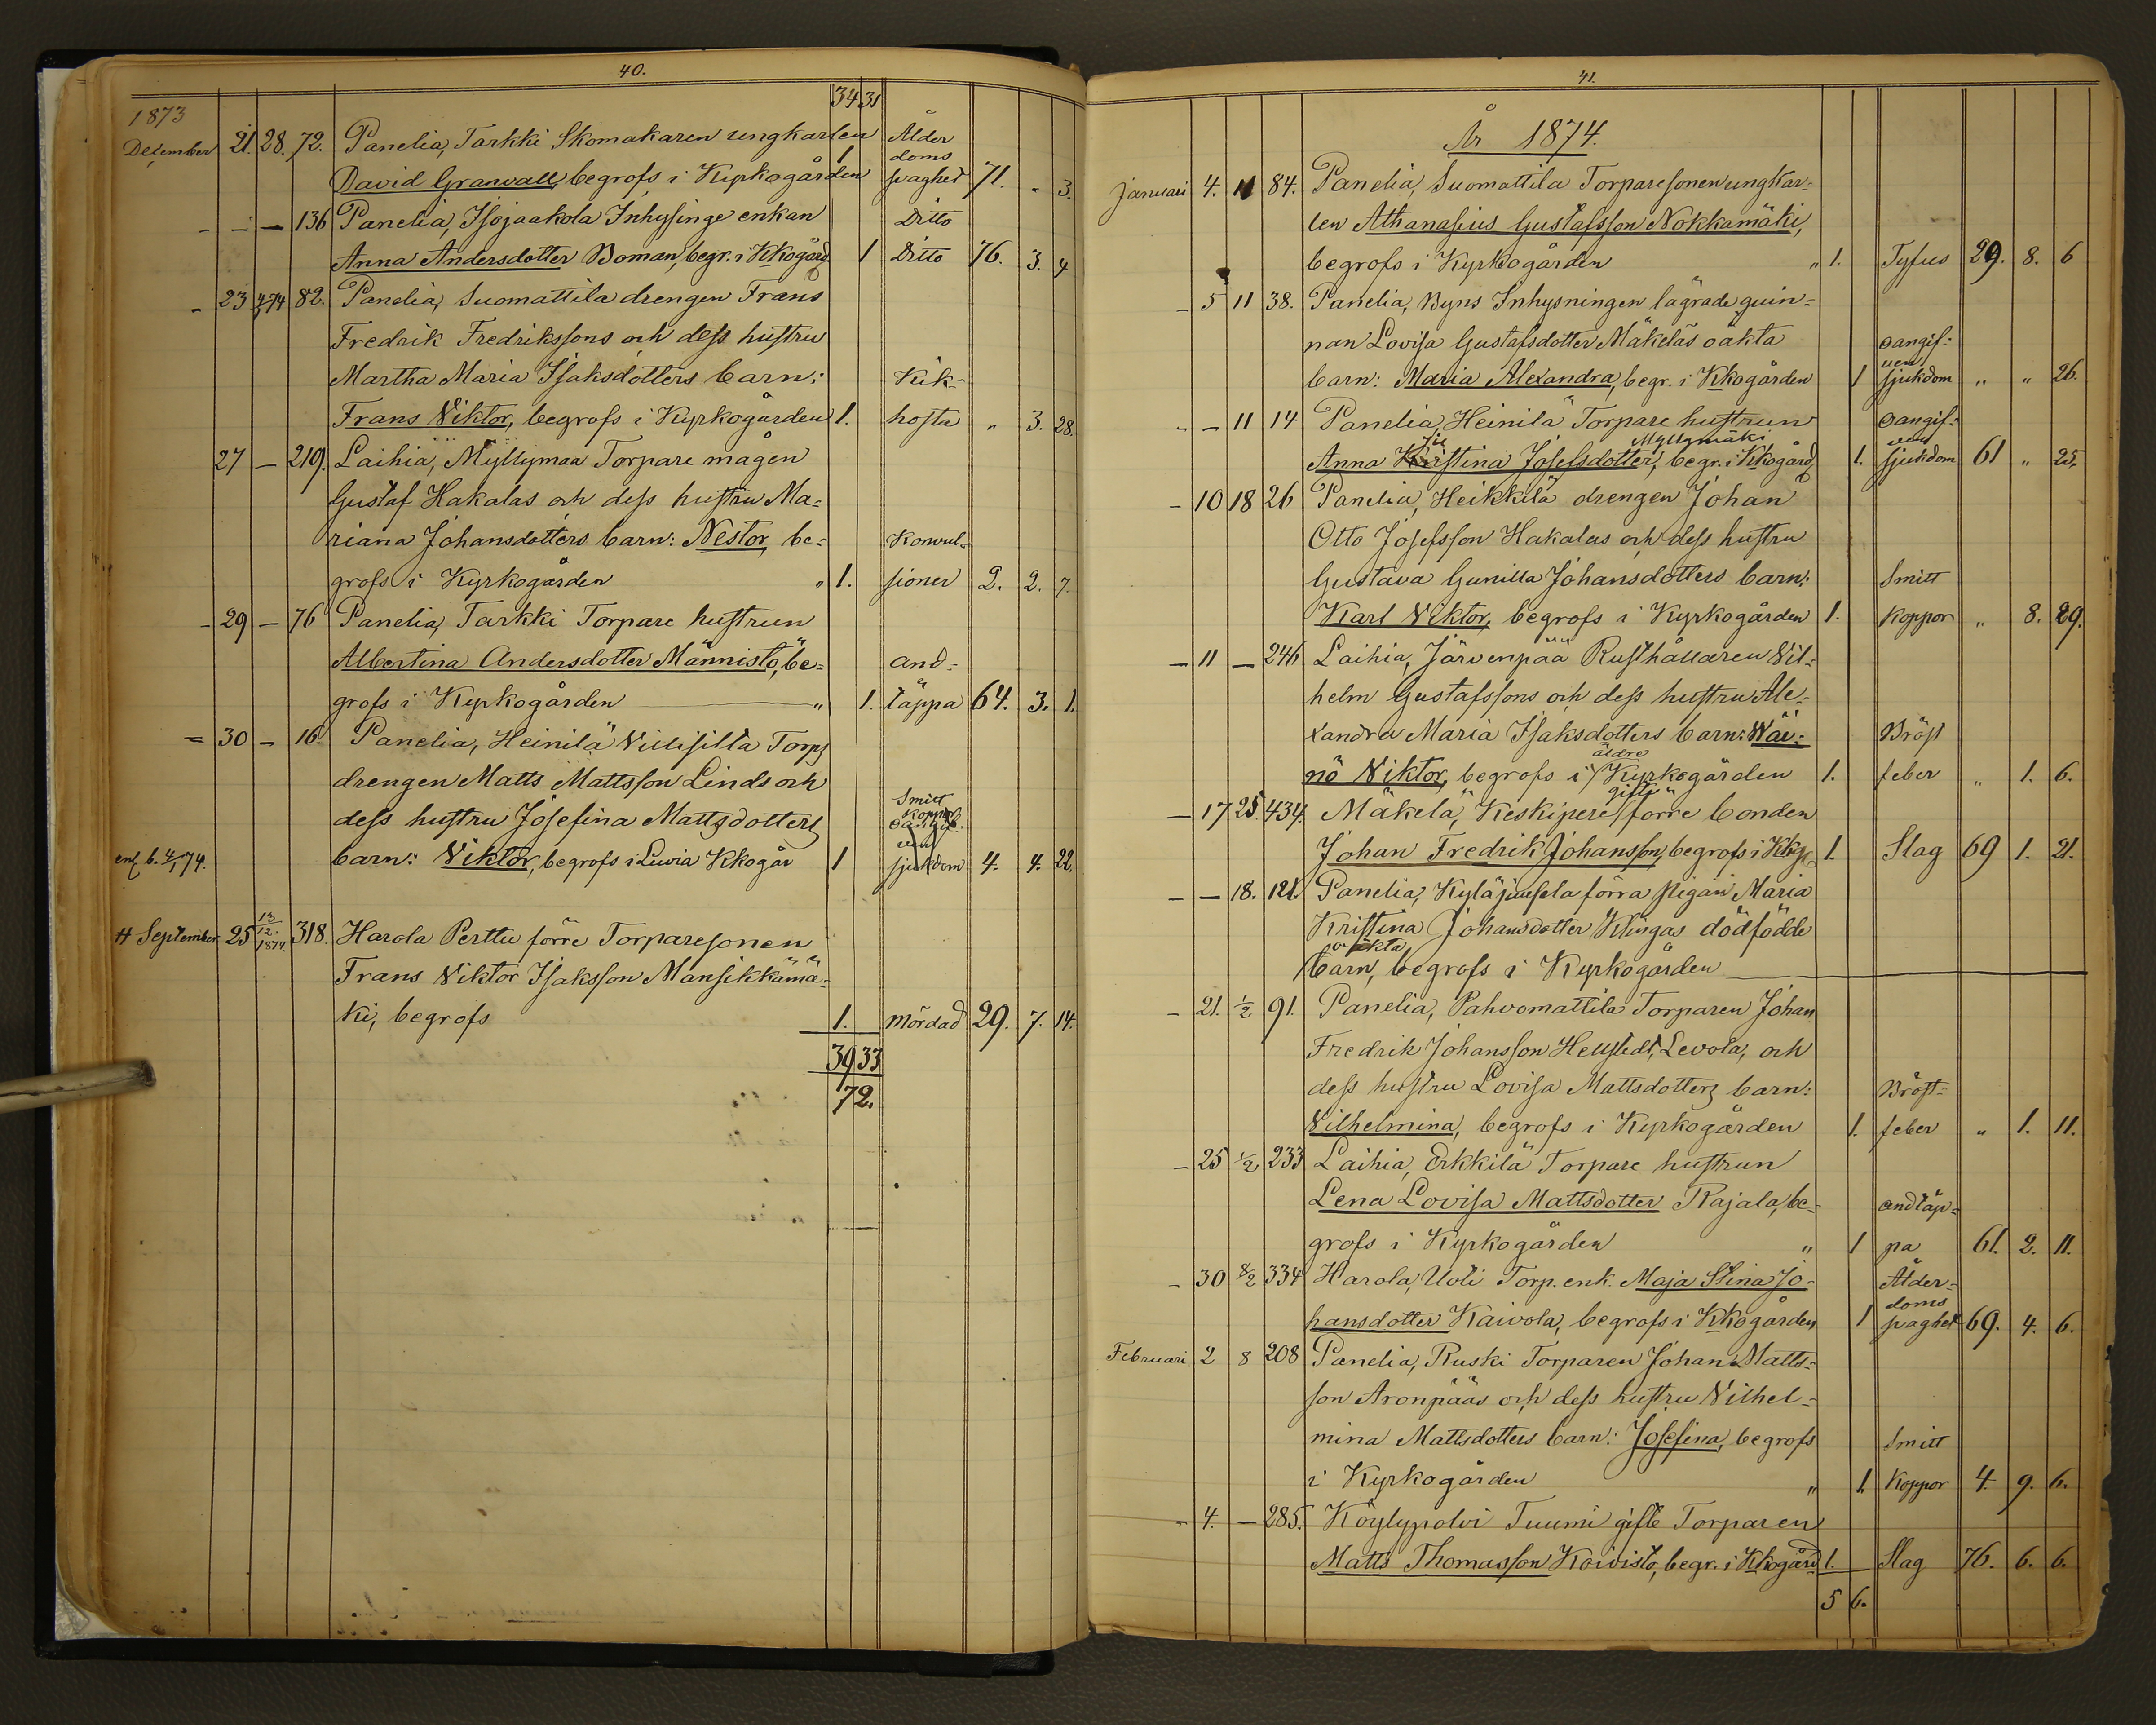 40.
34 31
1873
December 21. 28. 72. Panelia, Tarkki Skomakaren ungkarlen Ålder
doms
David Granvall, begrofs i Kyrkogården 1 svaghet 71. " 3.
- - - 136 Panelia, Isojaakola Inhysinge enkan Ditto
Anna Andersdotter Boman, begr. i Kkogård 1 Ditto 76. 3. 4
- 23 82. Panelia, Suomattila drengen Frans
Fredrik Fredrikssons och dess hustru
Martha Maria Isaksdotters barn: Kik-
Frans Viktor, begrofs i Kyrkogården 1. hosta " 3. 28.
27 - 219. Laihia, Myllymaa Torpare mågen
Gustaf Hakalas och dess hustru Ma=
riana Johansdotters barn: Nestor, be= Konvul=
grofs i Kyrkogården " 1. sioner 2. 2. 7.
- 29 - 76 Panelia, Tarkki Torpare hustrun
Albertina Andersdotter Männistö, be= and=
grofs i Kyrkogården " 1. täppa 64. 3. 1.
= 30 - 16. Panelia, Heinilä Villisilla Torps
drengen Matts Mattsson Linds och
Smitt
koppor
dess hustru Josefina Mattsdotters oangif.
ven
enl. b. 4/1 74. barn: Viktor, begrofs i Luvia Kkogår 1 sjukdom 4. 4. 22.
# September 25 13/12. 1874. 318. Harola Perttu förre Torparesonen
Frans Viktor Isaksson Mansikkamä=
ki, begrofs 1. Mördad 29. 7. 14.
39 33
72.
41.
År 1874.
Januari 4. 11 84. Panelia, Suomattila Torparesonen ungkar=
len Athanasius Gustafsson Nokkamäki,
begrofs i Kyrkogården " 1. Tyfus 29. 8. 6
- 5 11 38. Panelia, Byns Inhysningen lägrade quin=
nan Lovisa Gustafsdotter Mäkeläs oäkta oangif=
ven
barn: Maria Alexandra, begr. i Kkogården 1 sjukdom " " 26.
- - 11 14 Panelia, Heinilä Torpare hustrun oangif=
Myllymäki ven
Anna Kristina Josefsdotter, begr. i Kkogård 1. sjukdom 61 " 25.
- 10 18 26 Panelia, Heikkilä drengen Johan
Otto Josefsson Hakalas och dess hustru
Gustava Gunilla Johansdotters barn: Smitt
Karl Viktor, begrofs i Kyrkogården 1. koppor " 8. 29.
- 11 - 246 Laihia, Järvenpää Rusthållaren Vil=
helm Gustafssons och dess hustru Ale=
xandra Maria Isaksdotters barn: Wäi= Bröst
äldre
nö Viktor, begrofs i Kyrkogården 1. feber " 1. 6.
gifte
- 17 25. 434. Mäkelä, Keskipere förre bonden
Johan Fredrik Johansson, begrofs i Kkg 1. Slag 69 1. 21.
- - 18. 121. Panelia, Kyläjaakola förra pigan Maria
Kristina Johansdotter Klingas dödfödde
oäkta
barn, begrofs i Kyrkogården
- 21. 1/2 91. Panelia, Pahvomattila Torparen Johan
Fredrik Johansson Hellstedt, Levola, och
dess hustru Lovisa Mattsdotters barn: Bröst=
Vilhelmina, begrofs i Kyrkogården 1. feber " 1. 11.
- 25 1/2 233 Laihia, Erkkilä Torpare hustrun
Lena Lovisa Mattsdotter Rajala, be- andtäp=
grofs i Kyrkogården " 1 pa 61. 2. 11.
- 30 8/2 334 Harola, Uoti Torp. enk. Maja Stina Jo- Ålder=
doms
hansdotter Kaivola, begrofs i Kkogården 1 svaghet 69. 4. 6.
Februari 2 8 208 Panelia, Ruski Torparen Johan Matts=
son Aronpääs och dess hustru Vilhel=
mina Mattsdotters barn: Josefina, begrofs Smitt
i Kyrkogården " 1. koppor 4 9. 6.
- 4. - 285. Köylypolvi Tuumi gifte Torparen
Matts Thomasson Koivisto, begr. i Kkogård 1. Slag 76. 6. 6.
5 6.